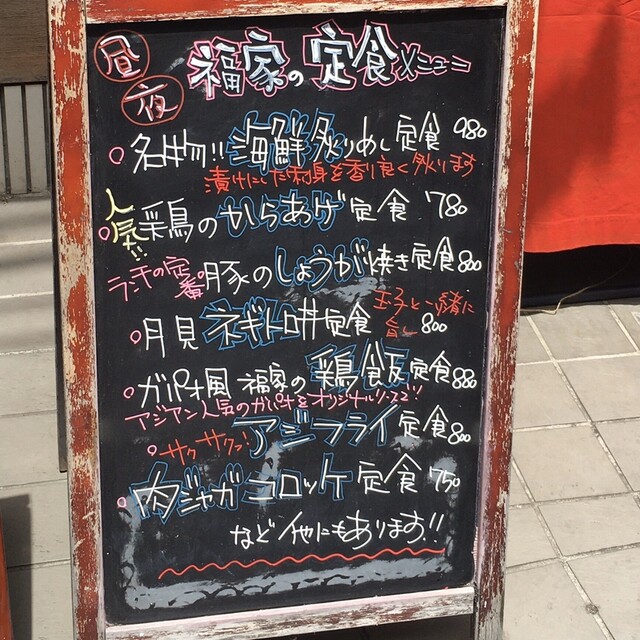 昼夜 福家の定食メニュー
名物!!海鮮炙りめし定食 980
漬けにした刺身を香り良く炙ります
人気!! 鶏のからあげ定食 780
ランチの定番 豚のしょうが焼き定食 800
玉子と一緒に
月見ネギトロ丼定食 旨し 800
ガパオ風 福家の鶏飯定食 880
アジアン人気のガパオをオリジナルソースで!!
サクサクッ! アジフライ定食 800
肉ジャガコロッケ定食 750
など他にもあります!!